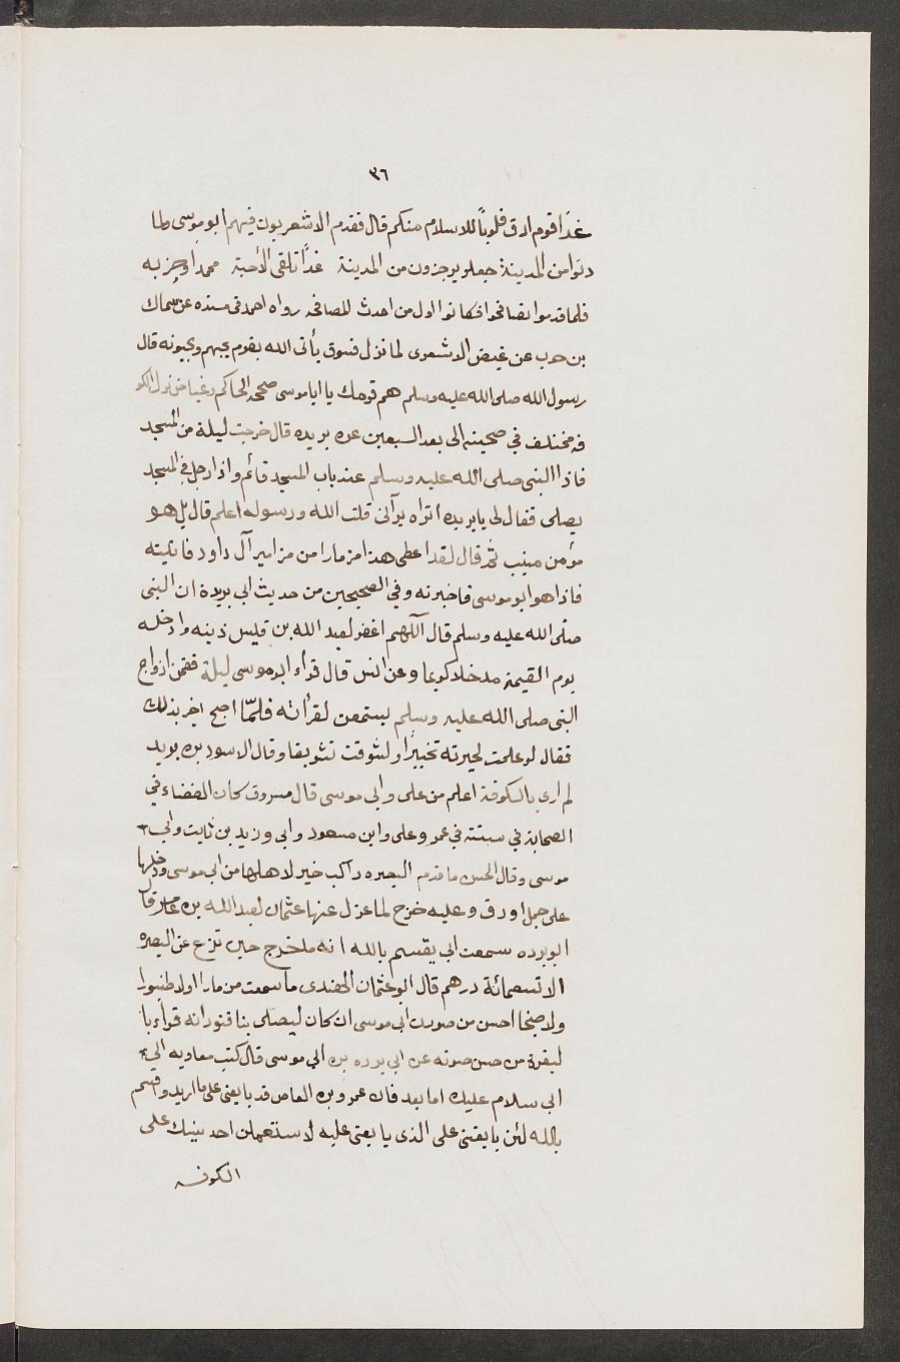 ٣٦
غدًا قوم ارق قلوبًا للاسلام منكم قال فقدم الاشعريون فيهم ابو موسى ولما
دنوا من المدينة جعلو يرجزون من المدينة غدًا تلقى الأحبة محمدًا وحزبه
فلما قدموا تصافحوا فكانوا اول من احدث المصافحه رواه احمد فى مسنده عن سماك
بن حرب عن عياض الاشعرى لما نزل فسوق يأتى الله بقوم يحبهم ويحبونه قال
رسول الله صلى الله عليه وسلم هم قومك يا ابا موسى صححه الحاكم وعياض نزل الكو
فه مختلف في صحبته الى بعد السبعين عن بريده قال خرجت ليلة من المسجد
فاذا النبى صلى الله عليه وسلم عند باب المسجد قائم واذا رجل في المسجد
يصلى فقال لى يا بريده اتراه يرآئى قلت الله ورسوله اعلم قال بل هو
مؤمن منيب ثم قال لقد اعطى هذا مزمارا من مزامير آل داود فاتيته
فاذا هو ابو موسى فاخبرته وفي الصحيحين من حديث ابى بريدة ان النبى
صلى الله عليه وسلم قال اللهم اغفر لعبد الله بن قيس ذنبه وادخله
يوم القيمة مدخلا كريما وعن انس قال قراء ابو موسى ليلة فقمن ازواج
النبى صلى الله عليه وسلم يستمعن لقرأته فلمّا اصبح اخبر بذلك
فقال لو علمت لحبرته تحبيرًا ولشوقت تشويقا وقال الاسود بن يزيد
لم ارى بالكوفة اعلم من على وابى موسى قال مسروق كان القضاء في
الصحابة في ستة في عمر وعلى وابن مسعود وابى وزيد بن ثابت وابى
موسى وقال الحسن ما قدم البصره راكب خير لاهلها من ابى موسى ودخلها
على جمل اورق وعليه خرج لما عزل عنها عثمان لعبد الله بن عامر قال
ابو برده سمعت ابى يقسم بالله انه ما خرج حين نزع عن البصره
الا تسعمائة درهم قال ابو عثمان الهندى ما سمعت مزمارا ولا طنبورا
ولا صنجا احسن من صوت ابى موسى ان كان ليصلى بنا فنود انه قراء با
لبقرة من حسن صوته عن ابى برده بن ابى موسى قال كتب معاويه الى
ابى سلام عليك اما بعد فان عمرو بن العاص قد بايعنى على ما اريد واقسم
بالله لئن بايعتنى على الذى بايعنى عليه لاستعملن احد بنيك على
الكوفه